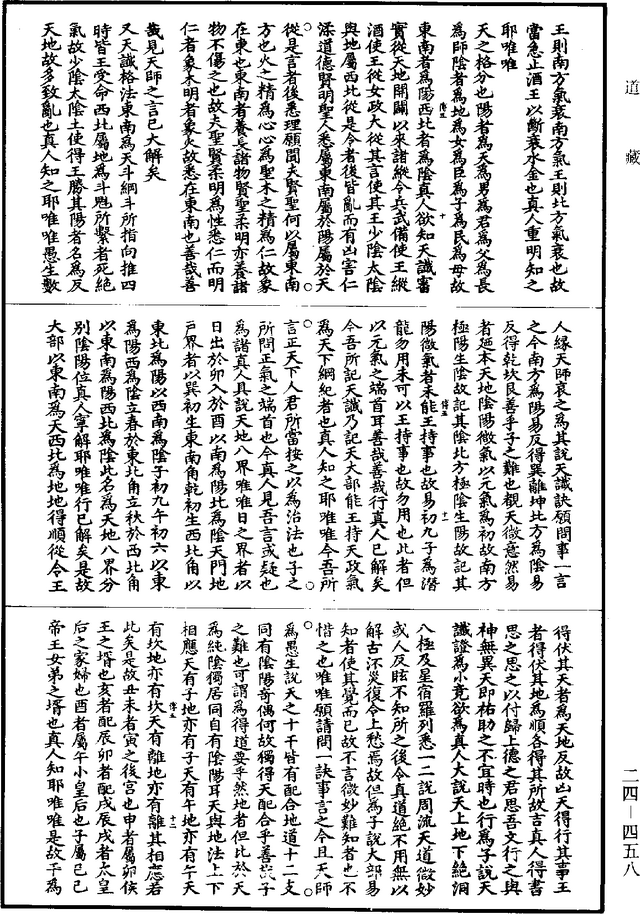 道藏
王則南方氣衰南方氣王則北方氣衰也故
當急止酒王以斷衰水金也真人重明知之
耶唯唯
天之格分也陽者為天為男為君為父為長
為師陰者為地為女為臣為子為民為母故
東南者為陽西北者為陰真人欲知天讖審
實從天地開闢以來諸縱令兵武備使王縱
酒使王從女政大從其言使其王少陰太陰
與地屬西北從是令者後皆亂而有凶害仁
柔道德賢明聖人悉屬東南屬於陽屬於天
從是言者後悉理願聞夫賢聖何以屬東南
方也火之精為心心為聖木之精為仁故象
在東也東南者養長諸物賢聖柔明亦養諸
物不傷之也故夫聖賢柔明為性悉仁而明
仁者象木明者象火故悉在東南也善哉善
哉見天師之言已大解矣
又天讖格法東南為天斗綱斗所指向推四
時皆王受命西北屬地為斗魁所繫者死絕
氣故少陰太陰土使得王勝其陽者名為反
天地故多致亂也真人知之耶唯唯愚生數
人緣天師哀之為其說天讖訣願問事一言
之今南方為陽易反得巽離坤北方為陰易
反得乾坎艮善乎子之難也覩天微意然易
者迺本天地陰陽微氣以元氣為初故南方
極陽生陰故記其陰北方極陰生陽故記其
陽微氣者未能王持事也故易初九子為潛
龍勿用未可以王持事也故勿用也此者但
以元氣之端首耳善哉善哉行真人已解矣
今吾所記天讖乃記天大部能王持天政氣
為天下綱紀者也真人知之耶唯唯今吾所
言正天下人君所當按之以為治法也子之
所問正氣之端首也今真人見吾言或疑也
為諸真人具說天地八界唯唯日之界者以
日出於卯入於酉以南為陽北為陰天門地
戶界者以巽初生東南角乾初生西北角以
東北為陽以西南為陰子初九午初六以東
為陽西為陰立春於東北角立秋於西北角
以東南為陽西北為陰此名為天地八界分
別陰陽位真人寧解耶唯唯行已解矣是故
大部以東南為天西北為地地得順從令王
得伏其天者為天地反故凶天得行其事王
者得伏其地為順各得其所故吉真人得書
思之思之以付歸上德之君思吾文行之與
神無異天即祐助之不宜時也行為子說天
讖證為小竟欲為真人大說天上地下絕洞
八極及星宿羅列悉一二說周流天道微妙
或人反眩不知所之後令真道絕不用無以
解古㳒災復令上愁焉故但為子說大部易
知者使其覺而已故不言微妙難知者也不
惜之也唯唯願請問一訣事言之今且天師
為愚生說天之十干皆有配合地道十二支
同有陰陽奇偶何故獨得天配合乎善哉子
之難也可謂為得道要乎然地者但比於天
為純陰獨居同自有陰陽耳天與地法上下
相應天有子地亦有子天有午地亦有午天
有坎地亦有坎天有離地亦有離其相應若
此矣是故丑未者寅之後宮也申者屬卯侯
王之婿也亥者配辰卯者配戌辰戌者太皇
后之家婦也酉者屬午小皇后也子屬巳巳
帝王女弟之壻也真人知耶唯唯是故子為
傳五
十
傳五
十一
傳五
十二
二四—四五八